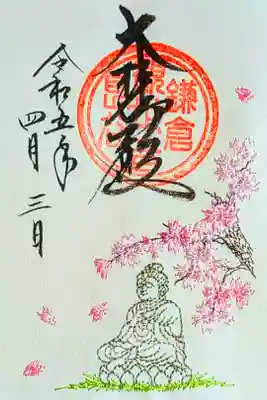 鎌倉
大悲殿
令和五年
四月三日